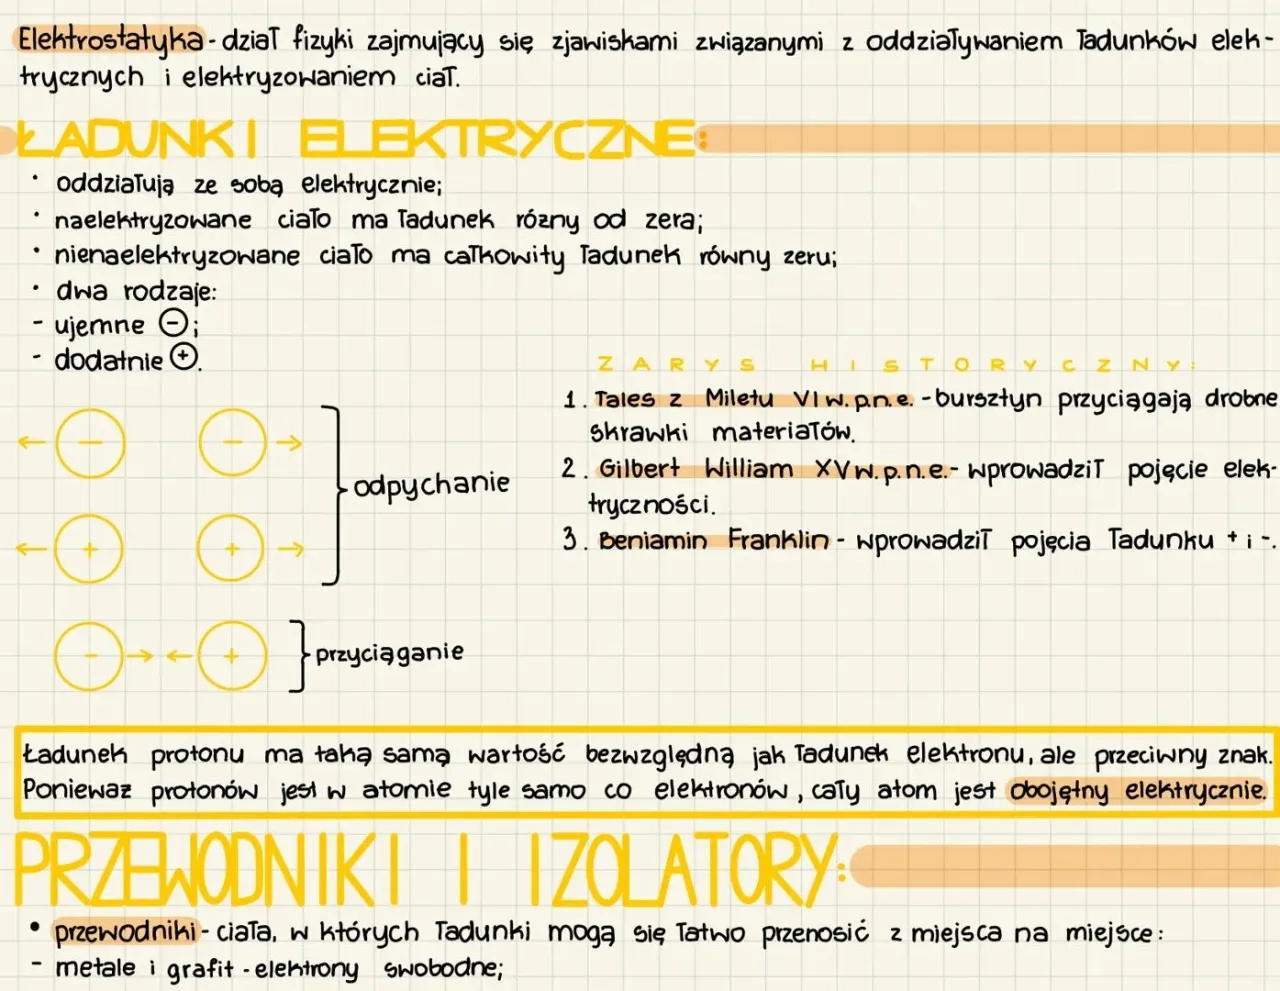 Elektrostatyka - dział fizyki zajmujący się zjawiskami związanymi z oddziaływaniem ładunków elek-
trycznych i elektryzowaniem ciał.
ŁADUNKI ELEKTRYCZNE:
• oddziałują ze sobą elektrycznie;
• naelektryzowane ciało ma ładunek różny od zera;
• nienaelektryzowane ciało ma całkowity ładunek równy zeru;
• dwa rodzaje:
- ujemne ⊖;
- dodatnie ⊕.
← − − →
odpychanie
← + + →
− → ← +
przyciąganie
ZARYS HISTORYCZNY:
1. Tales z Miletu VI w. p.n.e. - bursztyn przyciągają drobne
skrawki materiałów.
2. Gilbert William XV w. p.n.e. - wprowadził pojęcie elek-
tryczności.
3. Beniamin Franklin - wprowadził pojęcia ładunku + i -.
Ładunek protonu ma taką samą wartość bezwzględną jak ładunek elektronu, ale przeciwny znak.
Ponieważ protonów jest w atomie tyle samo co elektronów, cały atom jest obojętny elektrycznie.
PRZEWODNIKI I IZOLATORY:
• przewodniki - ciała, w których ładunki mogą się łatwo przenosić z miejsca na miejsce:
- metale i grafit - elektrony swobodne;